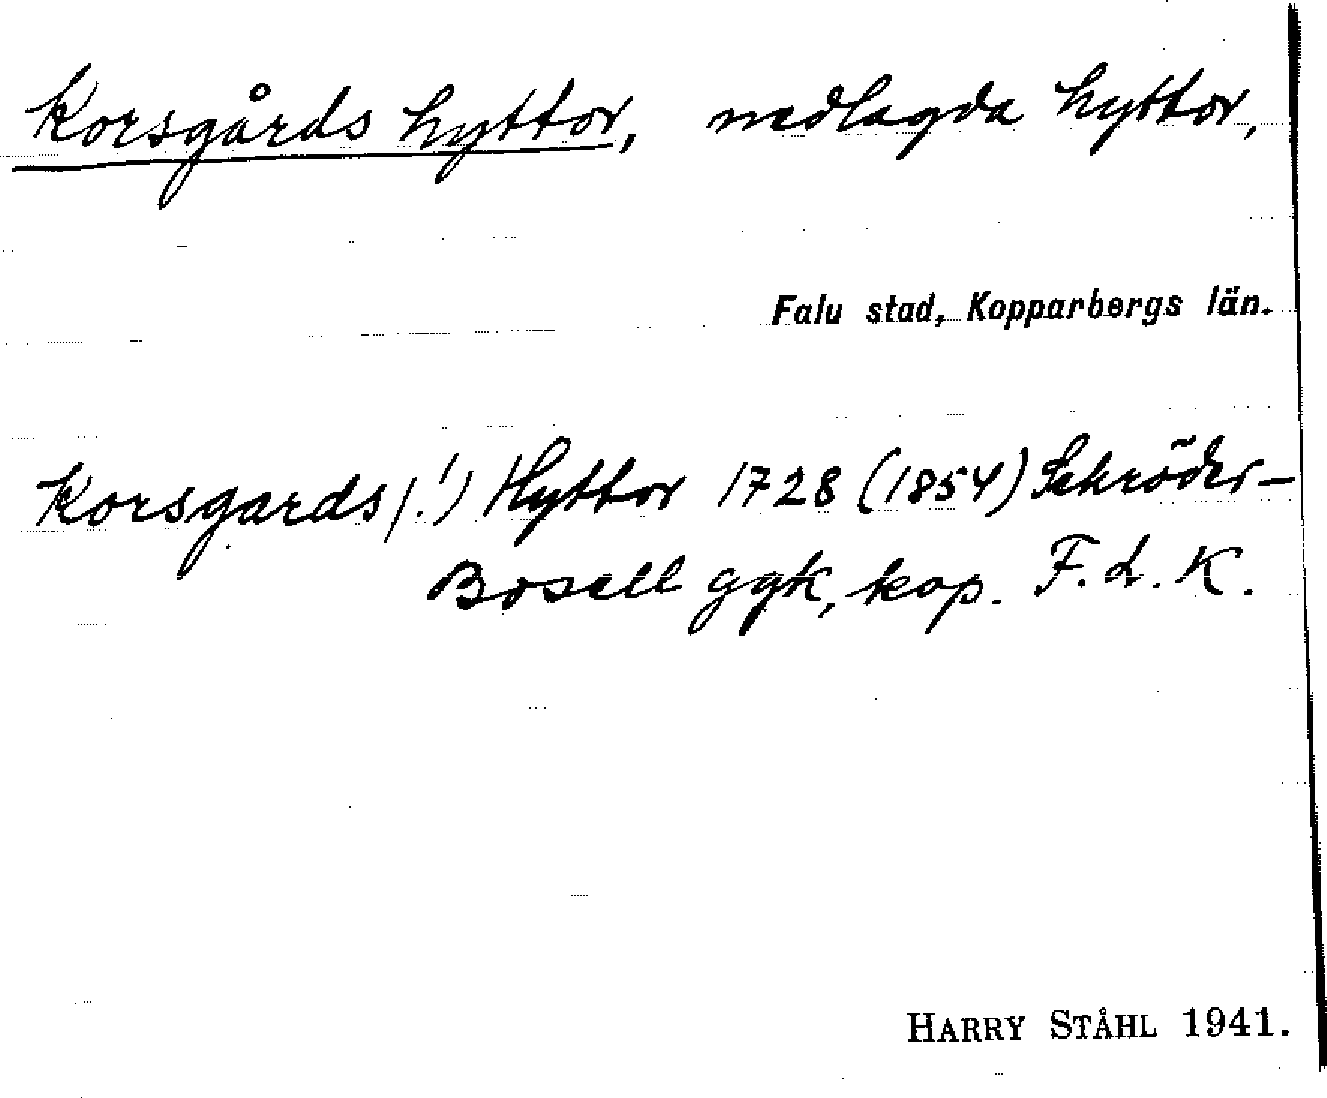 Korsgårds hyttor, nedlagda hyttor,
Falu stad, Kopparbergs län.
Korsgards(!) Hyttor 1728 (1854) Schröder-
Bosell ggk, kop. F.d.K.
HARRY STÅHL 1941.